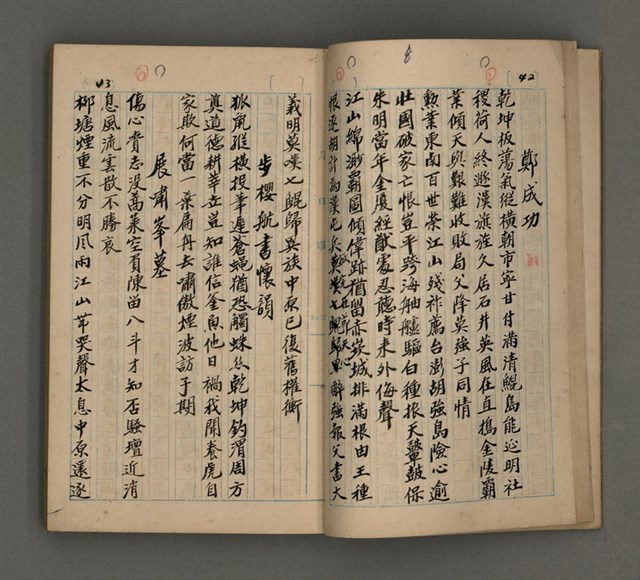 42
鄭成功
乾坤板蕩氣縱橫朝市寧甘付滿清鯤島能延明社
稷荷人終遯漢旗旌久居石井英風在直搗金陵霸
業傾天與艱難收殘局父降莫強子同情
勲業東南百世榮江山殘祚薦台澎胡強島險心逾
壯國破家亡恨豈平跨海舳艫驅白種掀天鼙鼓保
朱明當年金廈經猷處忍聽時來外侮聲
江山綿渺霸圖傾偉跡猶留赤崁城排滿根由王種
恨逐胡計為漢
強報父書大
義明莫嘆七鯤歸異族中原已復舊權衡
步櫻航書懷韻
狐鼠縱橫投筆遲蒼蠅猶恐觸蛛絲乾坤釣渭周方
奠道德新莽立豈知誰信釜魚他日禍我開養虎自
家欺何當一葉扁舟去嘯傲煙波訪子期
展嘯峯墓
傷心賫志沒蒿萊空負陳留八斗才知否騷壇近消
息風流雲散不勝哀
柳塘煙重不分明風雨江山帶哭聲太息中原還逐
43